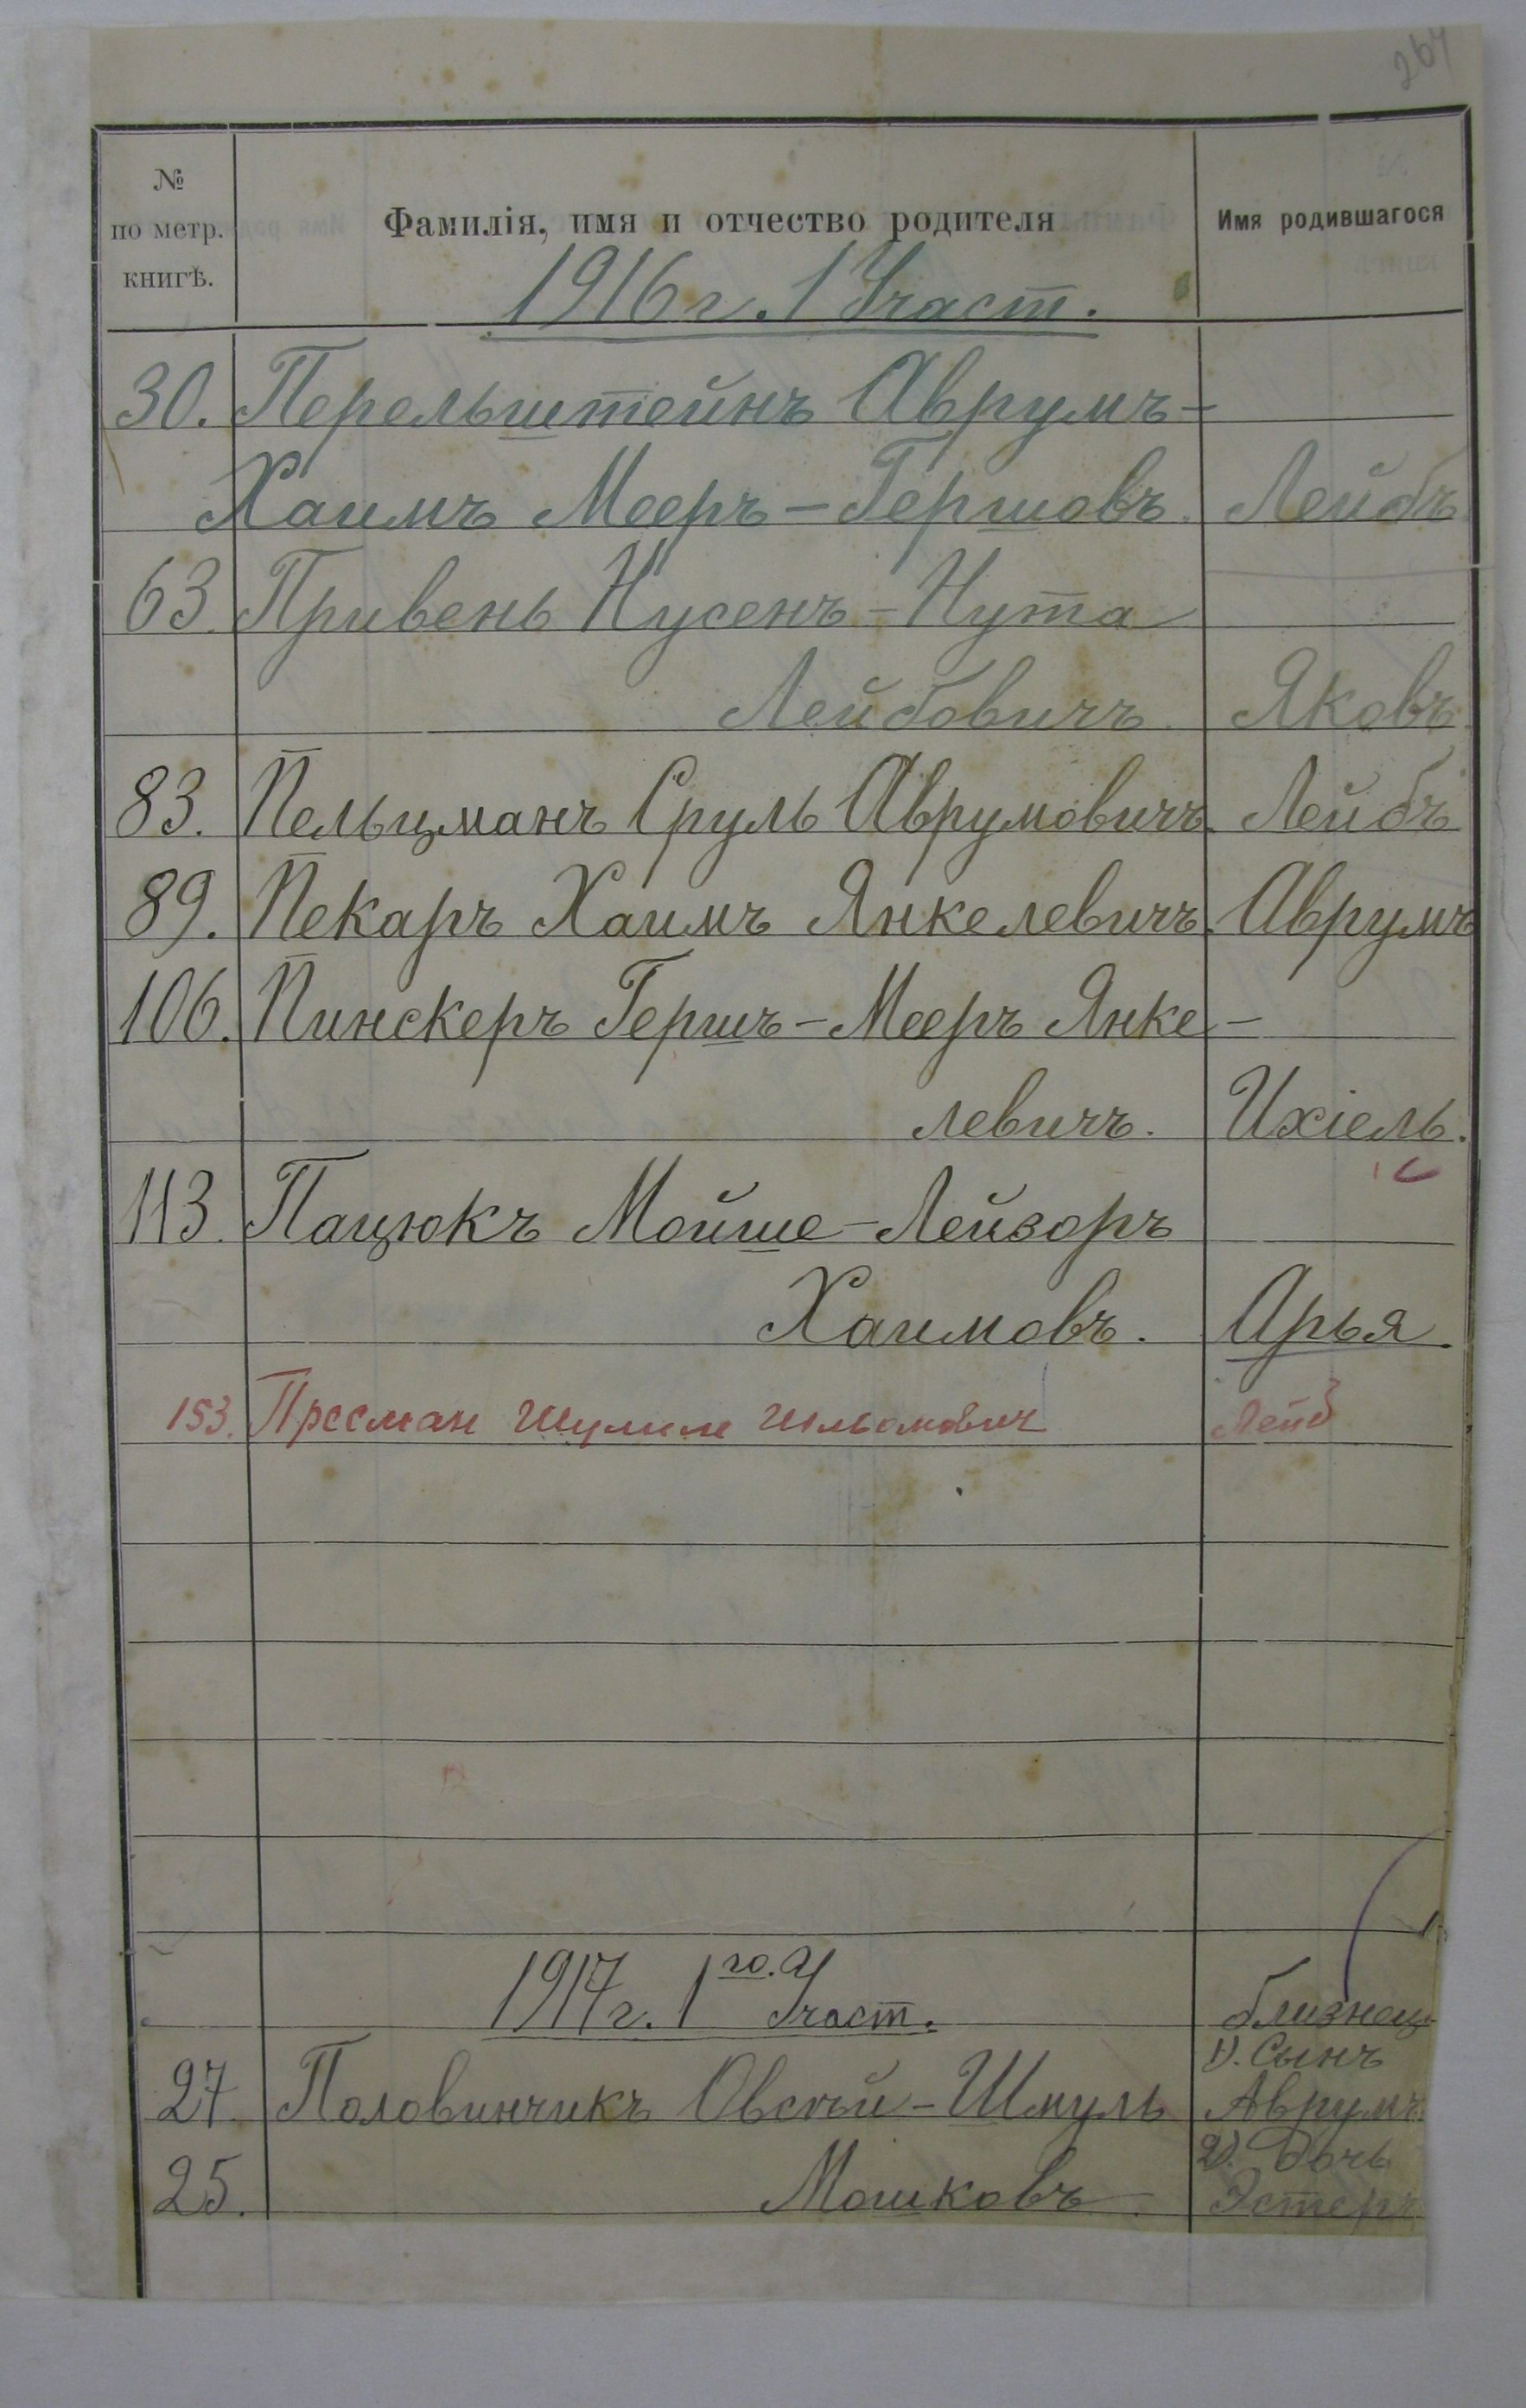 264
№ по метр. книгѣ.
Фамилія, имя и отчество родителя
Имя родившагося
1916 г. 1 Участ.
30. Перельштейнъ Аврумъ-
Хаимъ Мееръ-Гершовъ. Лейбъ
63. Привень Нусенъ-Нута
Лейбовичъ. Яковъ
83. Пельцманъ Сруль Аврумовичъ. Лейбъ
89. Пекаръ Хаимъ Янкелевичъ. Аврумъ
106. Пинскеръ Гершъ-Мееръ Янке-
левичъ. Ихіель.
113. Пацюкъ Мойше-Лейзоръ
Хаимовъ. Арья.
153. Пресман Шулим Лейб
1917 г. 1го Участ. близнец
1). Сынъ
27. Половинчикъ Овсѣй-Шмуль Аврумъ
2). Дочь
25. Мошковъ Эстеръ